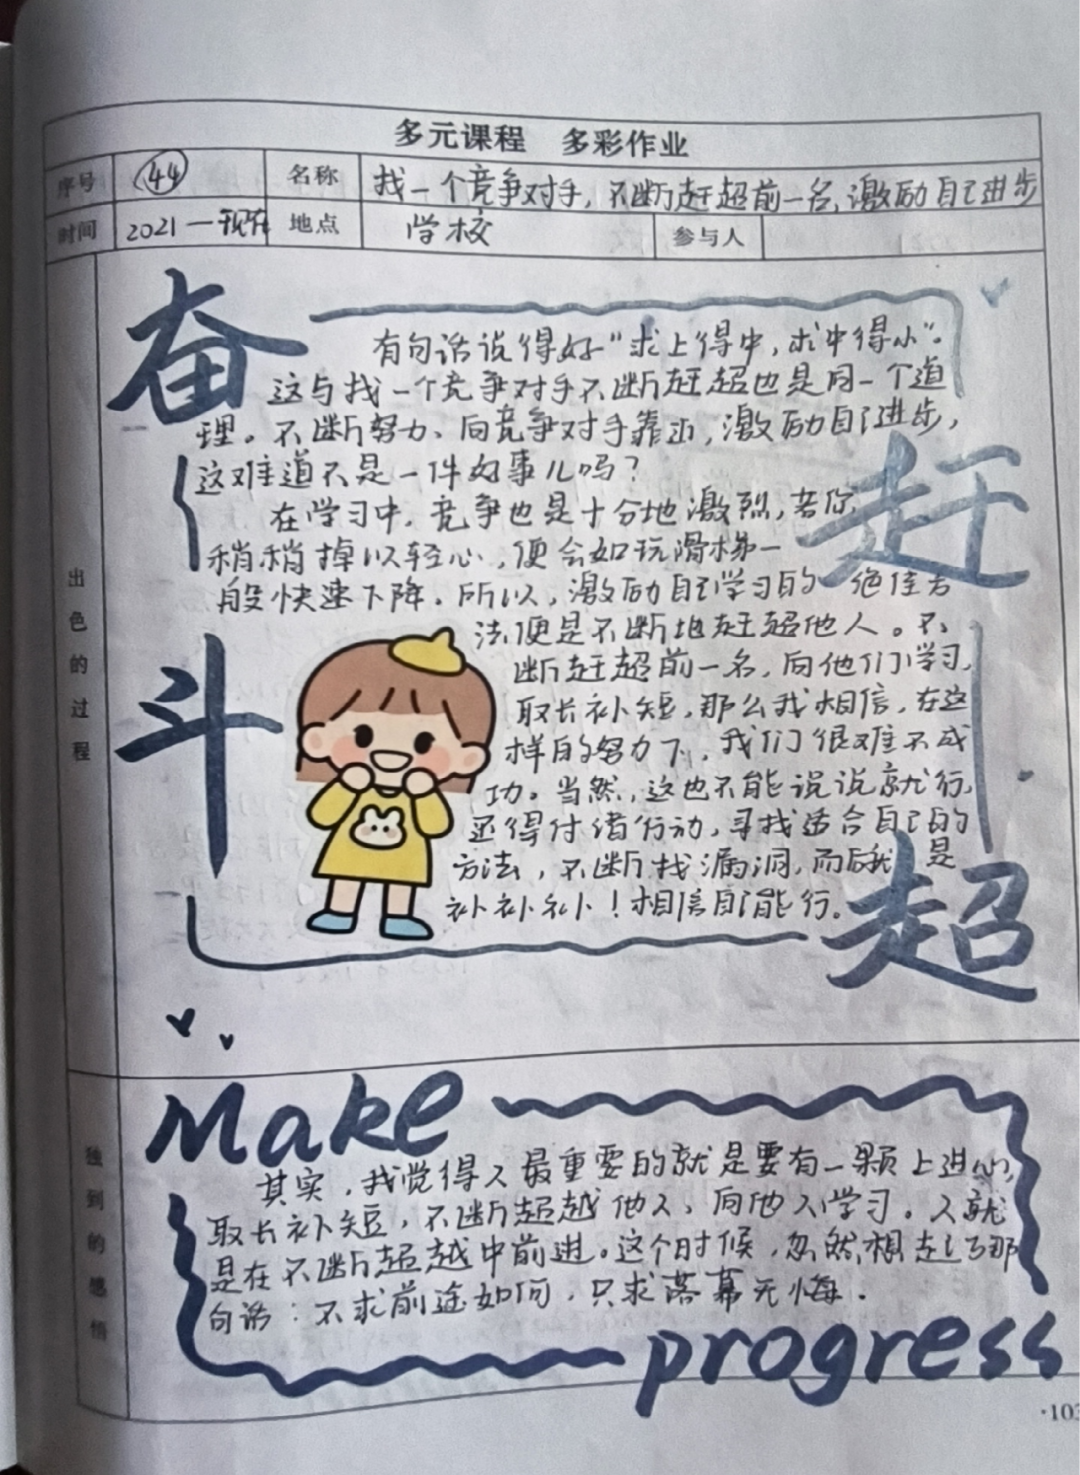 多元课程 多彩作业
序号 44 名称 找一个竞争对手,不断赶超前一名,激励自己进步
时间 2021一现在 地点 学校 参与人
出色的过程
奋
有句话说得好“求上得中,求中得小”。
这与找一个竞争对手不断赶超也是同一个道
理。不断努力、向竞争对手靠近,激励自己进步,
这难道不是一件好事儿吗?
在学习中,竞争也是十分地激烈,若你
赶
稍稍掉以轻心,便会如玩滑梯一
般快速下降。所以,激励自己学习的 绝佳方
法便是不断地赶超他人。不
斗
断赶超前一名,向他们学习,
取长补短,那么我相信,在这
样的努力下,我们很难不成
功。当然,这也不能说说就行,
还得付诸行动,寻找适合自己的
方法,不断找漏洞,而后就是
补补补!相信自己能行。
超
独到的感悟
Make
其实,我觉得人最重要的就是要有一颗上进心,
取长补短,不断超越他人、向他人学习。人就
是在不断超越中前进。这个时候,忽然想起了那
句话:不求前途如何,只求落幕无悔.
progress
·103